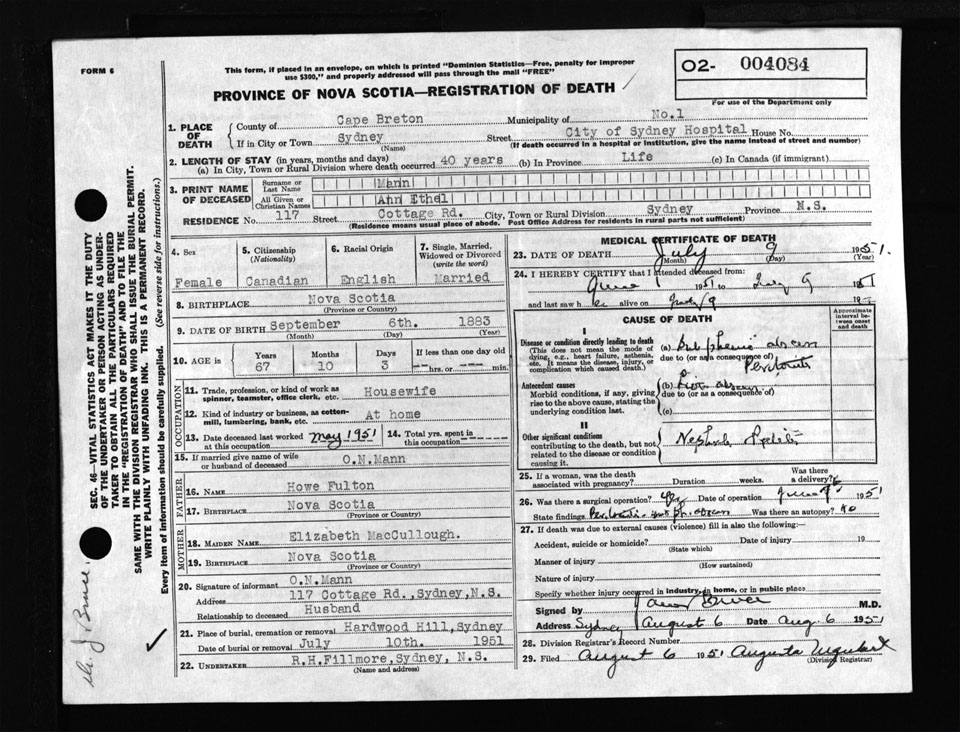 FORM 6
This form, if placed in an envelope, on which is printed "Dominion Statistics—Free, penalty for improper
use $300," and properly addressed will pass through the mail "FREE"
O2- 004084
For use of the Department only
PROVINCE OF NOVA SCOTIA—REGISTRATION OF DEATH
1. PLACE OF DEATH { County of Cape Breton Municipality of No.1
If in City or Town Sydney Street City of Sydney Hospital House No.
(Name) (If death occurred in a hospital or institution, give the name instead of street and number)
2. LENGTH OF STAY (in years, months and days)
(a) In City, Town or Rural Division where death occurred 40 years (b) In Province Life (c) In Canada (if immigrant)
3. PRINT NAME OF DECEASED { Surname or Last Name Mann
All Given or Christian Names Ann Ethel
RESIDENCE No. 117 Street Cottage Rd. City, Town or Rural Division Sydney Province N.S.
(Residence means usual place of abode. Post Office Address for residents in rural parts not sufficient)
4. Sex 5. Citizenship (Nationality) 6. Racial Origin 7. Single, Married, Widowed or Divorced (write the word)
Female Canadian English Married
8. BIRTHPLACE Nova Scotia
(Province or Country)
9. DATE OF BIRTH September 6th. 1883
(Month) (Day) (Year)
10. AGE in Years Months Days If less than one day old
67 10 3 hrs. or min.
OCCUPATION
11. Trade, profession, or kind of work as
spinner, teamster, office clerk, etc. Housewife
12. Kind of industry or business, as cotton-
mill, lumbering, bank, etc. At home
13. Date deceased last worked
at this occupation May 1951 14. Total yrs. spent in
this occupation
15. If married give name of wife
or husband of deceased O.N.Mann
FATHER
16. NAME Howe Fulton
17. BIRTHPLACE Nova Scotia
(Province or Country)
MOTHER
18. MAIDEN NAME Elizabeth MacCullough.
19. BIRTHPLACE Nova Scotia
(Province or Country)
20. Signature of informant O.N.Mann
Address 117 Cottage Rd.,Sydney,N.S.
Relationship to deceased Husband
21. Place of burial, cremation or removal Hardwood Hill,Sydney
Date of burial or removal July 10th. 1951
22. UNDERTAKER R.H.Fillmore,Sydney, N.S.
(Name and address)
MEDICAL CERTIFICATE OF DEATH
23. DATE OF DEATH July 9 1951.
(Month) (Day) (Year)
24. I HEREBY CERTIFY that I attended deceased from:
June 1 1951 to July 9 1951
and last saw her alive on July 9 195
CAUSE OF DEATH
Approximate interval between onset and death
I
Disease or condition directly leading to death
(This does not mean the mode of
dying, e.g., heart failure, asthenia,
etc. It means the disease, injury, or
complication which caused death.)
(a)
due to (or as a consequence of)
Peritonitis
Antecedent causes
Morbid conditions, if any, giving
rise to the above cause, stating the
underlying condition last.
(b)
due to (or as a consequence of)
(c)
II
Other significant conditions
contributing to the death, but not
related to the disease or condition
causing it.
25. If a woman, was the death
associated with pregnancy? Duration weeks. Was there
a delivery?
26. Was there a surgical operation? Yes Date of operation June 9 1951
State findings Was there an autopsy? No
27. If death was due to external causes (violence) fill in also the following:—
Accident, suicide or homicide? Date of injury 19
(State which)
Manner of injury
(How sustained)
Nature of injury
Specify whether injury occurred in industry, in home, or in public place
Signed by Bruce M.D.
Address Sydney August 6 Date Aug. 6 1951
28. Division Registrar's Record Number
29. Filed August 6 1951 Augusta Urquhart
(Division Registrar)
SEC. 46—VITAL STATISTICS ACT MAKES IT THE DUTY
OF THE UNDERTAKER OR PERSON ACTING AS UNDER-
TAKER TO OBTAIN ALL THE PARTICULARS REQUIRED
IN THE "REGISTRATION OF DEATH" AND TO FILE THE
SAME WITH THE DIVISION REGISTRAR WHO SHALL ISSUE THE BURIAL PERMIT.
WRITE PLAINLY WITH UNFADING INK. THIS IS A PERMANENT RECORD.
Every item of information should be carefully supplied. (See reverse side for instructions.)
Dr. J Bruce.